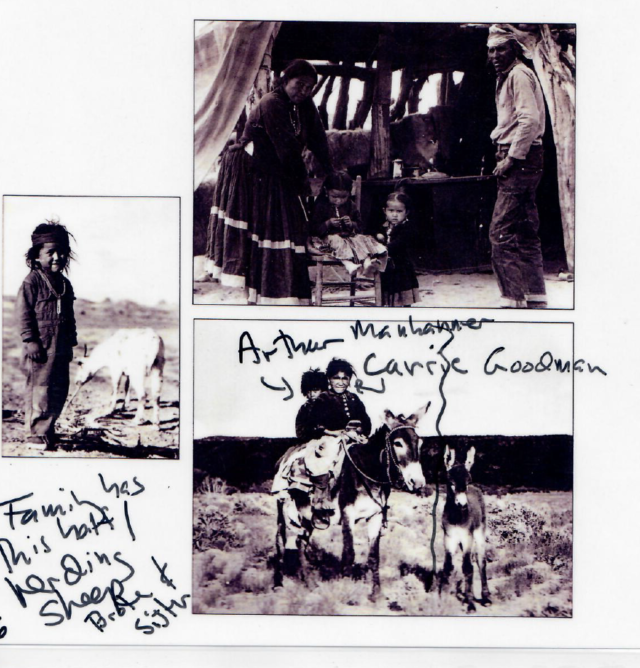 Arthur Manhammer
Carrie Goodman
Family has
this half
herding
sheep
&
Sister